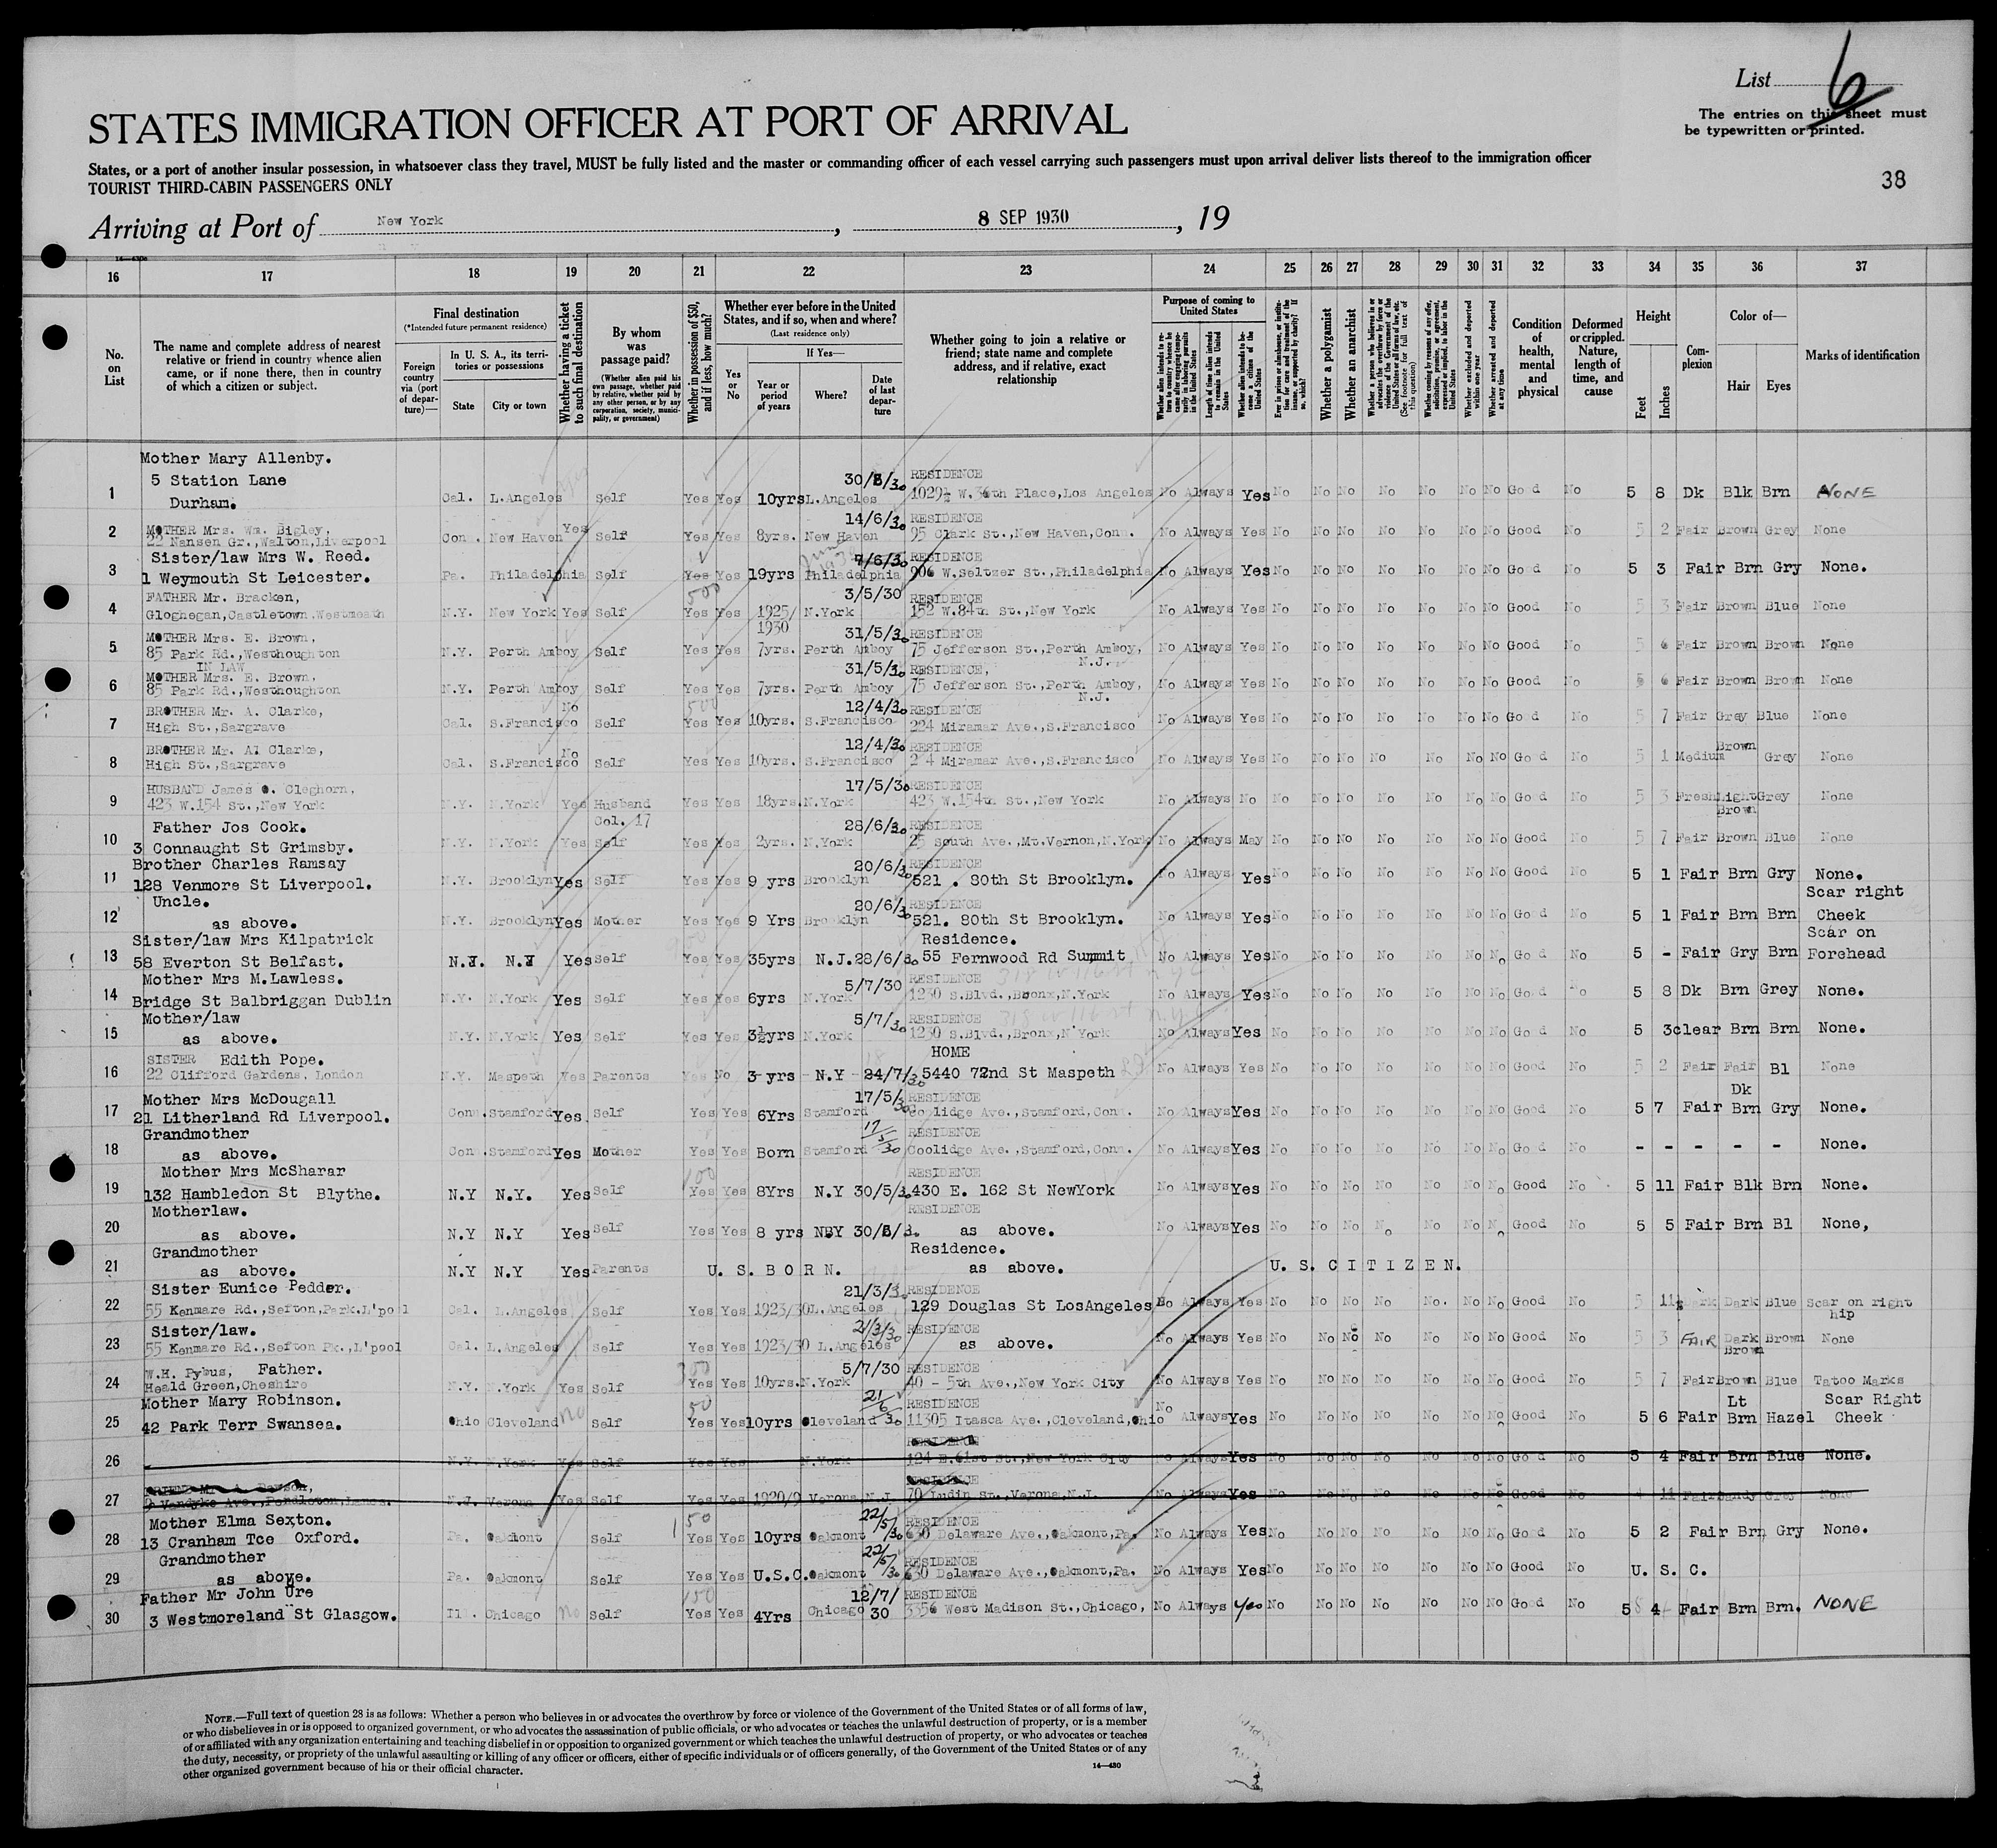 List 6
The entries on this sheet must
be typewritten or printed.
STATES IMMIGRATION OFFICER AT PORT OF ARRIVAL
States, or a port of another insular possession, in whatsoever class they travel, MUST be fully listed and the master or commanding officer of each vessel carrying such passengers must upon arrival deliver lists thereof to the immigration officer
TOURIST THIRD-CABIN PASSENGERS ONLY
38
Arriving at Port of New York, 8 SEP 1930, 19
16 17 18 19 20 21 22 23 24 25 26 27 28 29 30 31 32 33 34 35 36 37
No. on List
The name and complete address of nearest relative or friend in country whence alien came, or if none there, then in country of which a citizen or subject.
Final destination
(*Intended future permanent residence)
Foreign country via (port of departure)—
In U. S. A., its territories or possessions
State
City or town
Whether having a ticket to such final destination
By whom was passage paid?
(Whether alien paid his own passage, whether paid by relative, whether paid by any other person, or by any corporation, society, municipality, or government)
Whether in possession of $50, and if less, how much?
Whether ever before in the United States, and if so, when and where?
(Last residence only)
Yes or No
If Yes—
Year or period of years
Where?
Date of last departure
Whether going to join a relative or friend; state name and complete address, and if relative, exact relationship
Purpose of coming to United States
Length of time alien intends to remain in the United States
Whether alien intends to become a citizen of the United States
Whether a polygamist
Whether an anarchist
Whether excluded and deported within one year
Whether arrested and deported at any time
Condition of health, mental and physical
Deformed or crippled. Nature, length of time, and cause
Height
Feet
Inches
Complexion
Color of—
Hair
Eyes
Marks of identification
Mother Mary Allenby.
5 Station Lane 30/8/30 RESIDENCE
1 Durham. Cal. L.Angeles Self Yes Yes 10yrs L.Angeles 1029½ W.36th Place,Los Angeles No Always Yes No No No No No No No Good No 5 8 Dk Blk Brn NONE
14/6/30 RESIDENCE
2 MOTHER Mrs. Wm. Bigley, 22 Nansen Gr.,Walton,Liverpool Con. New Haven Yes Self Yes Yes 8yrs. New Haven 95 Clark St.,New Haven,Conn. No Always Yes No No No No No No No Good No 5 2 Fair Brown Grey None
Sister/law Mrs W. Reed. 7/6/30 RESIDENCE
3 1 Weymouth St Leicester. Pa. Philadelphia Self Yes Yes 19yrs Philadelphia 906 W.Seltzer St.,Philadelphia No Always Yes No No No No No No No Good No 5 3 Fair Brn Gry None.
FATHER Mr. Bracken, 500 3/5/30 RESIDENCE
4 Gloghegan,Castletown,Westmeath N.Y. New York Yes Self Yes Yes 1925/1930 N.York 152 W.84th St.,New York No Always Yes No No No No No No No Good No 5 3 Fair Brown Blue None
MOTHER Mrs. E. Brown, 31/5/30 RESIDENCE
5 85 Park Rd.,Westhoughton N.Y. Perth Amboy Self Yes Yes 7yrs. Perth Amboy 75 Jefferson St.,Perth Amboy, N.J. No Always Yes No No No No No No No Good No 5 6 Fair Brown Brown None
IN LAW
MOTHER Mrs. E. Brown, 31/5/30 RESIDENCE,
6 85 Park Rd.,Westhoughton N.Y. Perth Amboy Self Yes Yes 7yrs. Perth Amboy 75 Jefferson St.,Perth Amboy, N.J. No Always Yes No No No No No No No Good No 5 6 Fair Brown Brown None
BROTHER Mr. A. Clarke, No 500 12/4/30 RESIDENCE
7 High St.,Sargrave Cal. S.Francisco Self Yes Yes 10yrs. S.Francisco 224 Miramar Ave.,S.Francisco No Always Yes No No No No No No No Good No 5 7 Fair Grey Blue None
BROTHER Mr. A. Clarke, No 12/4/30 RESIDENCE Brown
8 High St.,Sargrave Cal. S.Francisco Self Yes Yes 10yrs. S.Francisco 224 Miramar Ave.,S.Francisco No Always Yes No No No No No No No Good No 5 1 Medium Grey None
HUSBAND James O. Cleghorn, 17/5/30 RESIDENCE
9 423 W.154 St.,New York N.Y. N.York Yes Husband Col. 17 Yes Yes 18yrs. N.York 423 W.154th St.,New York No Always No No No No No No No No Good No 5 3 Fresh Light Brown Grey None
Father Jos Cook. 28/6/30 RESIDENCE
10 3 Connaught St Grimsby. N.Y. N.York Yes Self Yes Yes 2yrs. N.York 25 South Ave.,Mt.Vernon,N.York No Always May No No No No No No No Good No 5 7 Fair Brown Blue None
Brother Charles Ramsay 20/6/30 RESIDENCE
11 128 Venmore St Liverpool. N.Y. Brooklyn Yes Self Yes Yes 9 yrs Brooklyn 521 . 80th St Brooklyn. No Always Yes No No No No No No No Good No 5 1 Fair Brn Gry None.
Uncle. 20/6/30 RESIDENCE Scar right
12 as above. N.Y. Brooklyn Yes Mother Yes Yes 9 Yrs Brooklyn 521. 80th St Brooklyn. No Always Yes No No No No No No No Good No 5 1 Fair Brn Brn Cheek
Sister/law Mrs Kilpatrick Residence. Scar on
13 58 Everton St Belfast. N.J. N.J Yes Self Yes Yes 35yrs N.J. 28/6/30 55 Fernwood Rd Summit No Always Yes No No No No No No No Good No 5 - Fair Gry Brn Forehead
Mother Mrs M.Lawless. 5/7/30 RESIDENCE
14 Bridge St Balbriggan Dublin N.Y. N.York Yes Self Yes Yes 6yrs N.York 1230 S.Blvd.,Bronx,N.York No Always Yes No No No No No No No Good No 5 8 Dk Brn Grey None.
Mother/law 5/7/30 RESIDENCE
15 as above. N.Y. N.York Yes Self Yes Yes 3½yrs N.York 1230 S.Blvd.,Bronx,N.York No Always Yes No No No No No No No Good No 5 3 clear Brn Brn None.
SISTER Edith Pope. HOME
16 22 Clifford Gardens, London N.Y. Maspeth Yes Parents Yes No 3-yrs - N.Y - 24/7/30 5440 72nd St Maspeth No Always Yes No No No No No No No Good No 5 2 Fair Fair Bl None
Mother Mrs McDougall 17/5/30 RESIDENCE Dk
17 21 Litherland Rd Liverpool. Conn. Stamford Yes. Self Yes Yes 6Yrs Stamford Coolidge Ave.,Stamford,Conn. No Always Yes No No No No No No No Good No 5 7 Fair Brn Gry None.
Grandmother 17/5/30 RESIDENCE
18 as above. Con. Stamford Yes Mother Yes Yes Born Stamford Coolidge Ave.,Stamford,Conn. No Always Yes No No No No No No No Good No - - - - - None.
Mother Mrs McSharar 100 RESIDENCE
19 132 Hambledon St Blythe. N.Y N.Y. Yes Self Yes Yes 8Yrs N.Y 30/5/30 430 E. 162 St NewYork No Always Yes No No No No No No No Good No 5 11 Fair Blk Brn None.
Motherlaw. RESIDENCE
20 as above. N.Y N.Y Yes Self Yes Yes 8 yrs NBY 30/5/3. as above. No Always Yes No No No No No No No Good No 5 5 Fair Brn Bl None,
Grandmother Residence.
21 as above. N.Y N.Y Yes Parents U. S. B O R N. as above. U. S. C I T I Z E N.
Sister Eunice Pedder. 21/3/30 RESIDENCE
22 55 Kenmare Rd.,Sefton,Park.L'pool Cal. L.Angeles Self Yes Yes 1923/30 L.Angeles 129 Douglas St LosAngeles No Always Yes No No No No No. No No Good No 5 11½ Dark Dark Blue Scar on right hip
Sister/law. 21/3/30 RESIDENCE
23 55 Kenmare Rd.,Sefton Pk.,L'pool Cal. L.Angeles Self Yes Yes 1923/30 L.Angeles as above. No Always Yes No No No No No No No Good No 5 3 FAIR Dark Brown Brown None
W.H. Pybus, Father. 300 5/7/30 RESIDENCE
24 Heald Green,Cheshire N.Y. N.York Yes Self Yes Yes 10yrs. N.York 40 - 5th Ave.,New York City No Always Yes No No No No No No No Good No 5 7 Fair Brown Blue Tatoo Marks
Mother Mary Robinson. 50 21/6/30 RESIDENCE Lt Scar Right
25 42 Park Terr Swansea. Ohio Cleveland No Self Yes Yes 10yrs Cleveland 11305 Itasca Ave.,Cleveland,Ohio No Always Yes No No No No No No No Good No 5 6 Fair Brn Hazel Cheek
RESIDENCE
26 N.Y. N.York Yes Self Yes Yes N.York 124 E.61st St.,New York City No Always Yes No No No No No No No Good No 5 4 Fair Brn Blue None.
RESIDENCE
27 Vandyke Ave.,Pendleton,Lancs. N.J. Verona Yes Self Yes Yes 1920/9 Verona N.J. 70 Ludin St.,Verona,N.J. No Always Yes No No No No No No No Good No 4 11 Fair Sandy Grey None
Mother Elma Sexton. 150 22/5/30 RESIDENCE
28 13 Cranham Tce Oxford. Pa. Oakmont Self Yes Yes 10yrs Oakmont 630 Delaware Ave.,Oakmont,Pa. No Always Yes No No No No No No No Good No 5 2 Fair Brn Gry None.
Grandmother 22/5/30 RESIDENCE
29 as above. Pa. Oakmont Self Yes Yes U.S.C. Oakmont 630 Delaware Ave.,Oakmont,Pa. No Always Yes No No No No No No No Good No U. S. C.
Father Mr John Ure 150 12/7/30 RESIDENCE
30 3 Westmoreland St Glasgow. Ill. Chicago No Self Yes Yes 4Yrs Chicago 3356 West Madison St.,Chicago, No Always Yes No No No No No No No Good No 5 4 Fair Brn Brn. NONE
NOTE.—Full text of question 28 is as follows: Whether a person who believes in or advocates the overthrow by force or violence of the Government of the United States or of all forms of law,
or who disbelieves in or is opposed to organized government, or who advocates the assassination of public officials, or who advocates or teaches the unlawful destruction of property, or is a member
of or affiliated with any organization entertaining and teaching disbelief in or opposition to organized government or which teaches the unlawful destruction of property, or who advocates or teaches
the duty, necessity, or propriety of the unlawful assaulting or killing of any officer or officers, either of specific individuals or of officers generally, of the Government of the United States or of any
other organized government because of his or their official character.
14—430